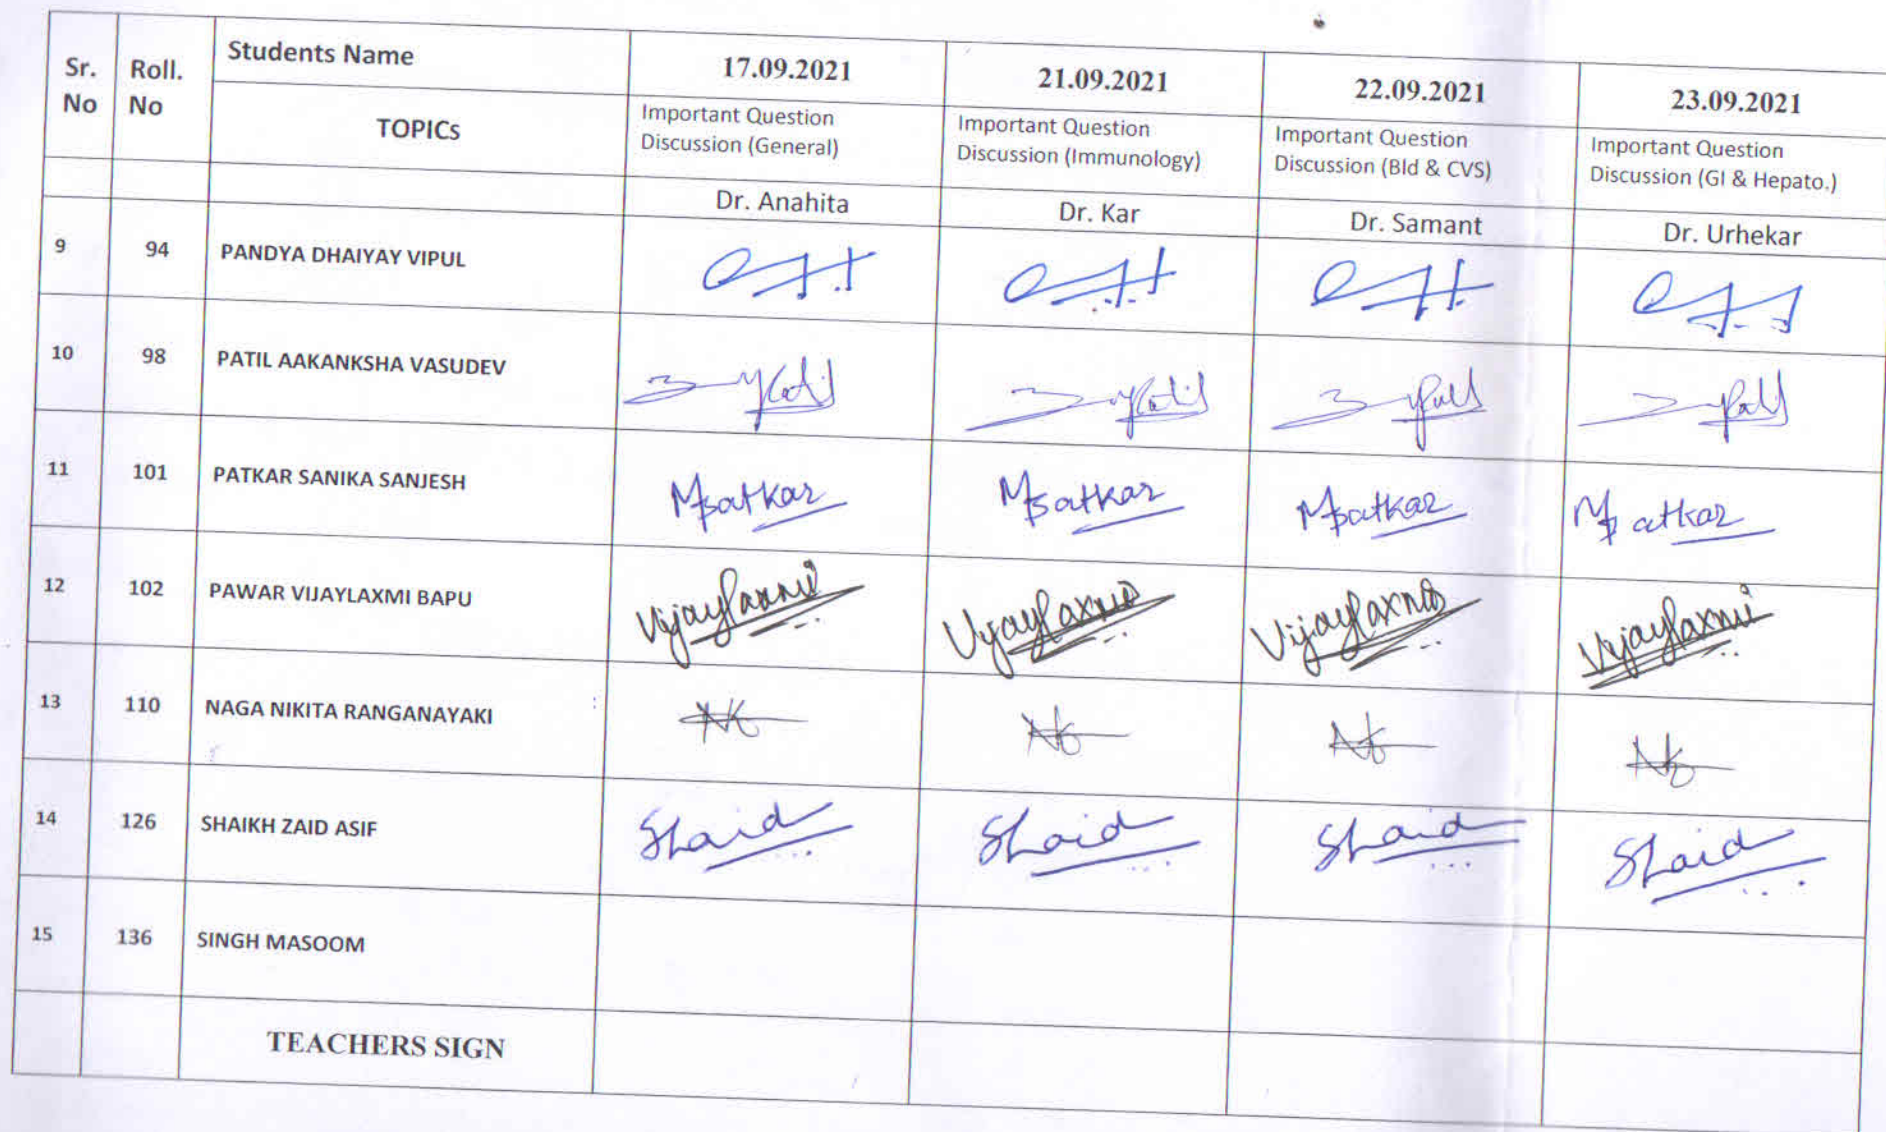 Sr. No
Roll. No
Students Name
17.09.2021
21.09.2021
22.09.2021
23.09.2021
TOPICs
Important Question
Discussion (General)
Important Question
Discussion (Immunology)
Important Question
Discussion (Bld & CVS)
Important Question
Discussion (GI & Hepato.)
Dr. Anahita
Dr. Kar
Dr. Samant
Dr. Urhekar
9 94 PANDYA DHAIYAY VIPUL
10 98 PATIL AAKANKSHA VASUDEV
11 101 PATKAR SANIKA SANJESH
12 102 PAWAR VIJAYLAXMI BAPU Vijaylaxmi Vijaylaxmi Vijaylaxmi Vijaylaxmi
13 110 NAGA NIKITA RANGANAYAKI
14 126 SHAIKH ZAID ASIF Shaid Shaid Shaid Shaid
15 136 SINGH MASOOM
TEACHERS SIGN